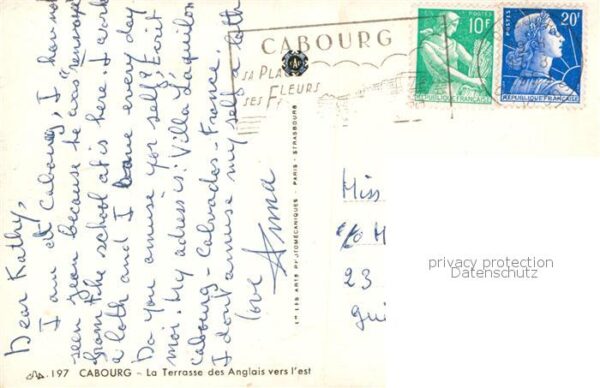 Dear Kathy,
I am at Cabourg, I have not
seen Jean because he avis "renvoyé"
from the school at is here. I
a loth and I every day
Do you amuse yor self? Ecrit
moi. My adress is: Villa L'aquilon
Cabourg - Calvados - France.
I don't amuse my self a loth
love Anna
CABOURG
SA PLA
SES FLEURS
POSTES
10F
REPUBLIQUE FRANÇAISE
POSTES
20F
REPUBLIQUE FRANÇAISE
LES ARTS PHOTOMÉCANIQUES - PARIS - STRASBOURG
Miss
c/o M
23
privacy protection
Datenschutz
197 CABOURG - La Terrasse des Anglais vers l'est